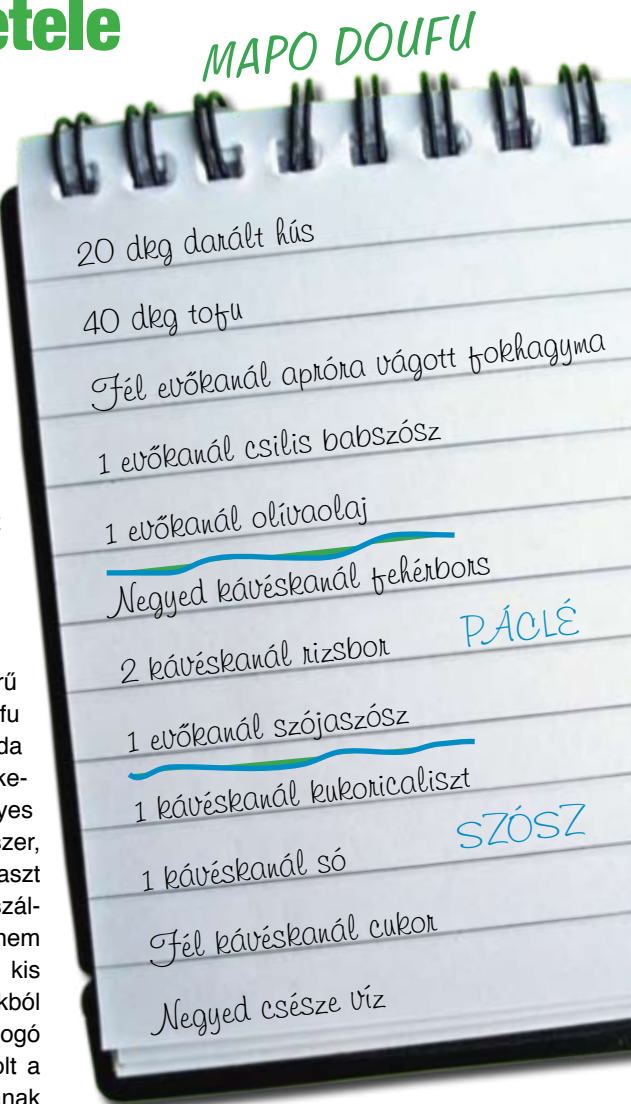 etele
MAPO DOUFU
20 dkg darált hús
40 dkg tofu
Fél evőkanál apróra vágott fokhagyma
1 evőkanál csilis babszósz
1 evőkanál olívaolaj
Negyed kávéskanál fehérbors
PÁCLÉ
2 kávéskanál rizsbor
1 evőkanál szójaszósz
1 kávéskanál kukoricaliszt
SZÓSZ
1 kávéskanál só
Fél kávéskanál cukor
Negyed csésze víz
rű
fu
da
ke-
yes
szer,
aszt
szál-
nem
kis
kból
ogó
olt a
nak